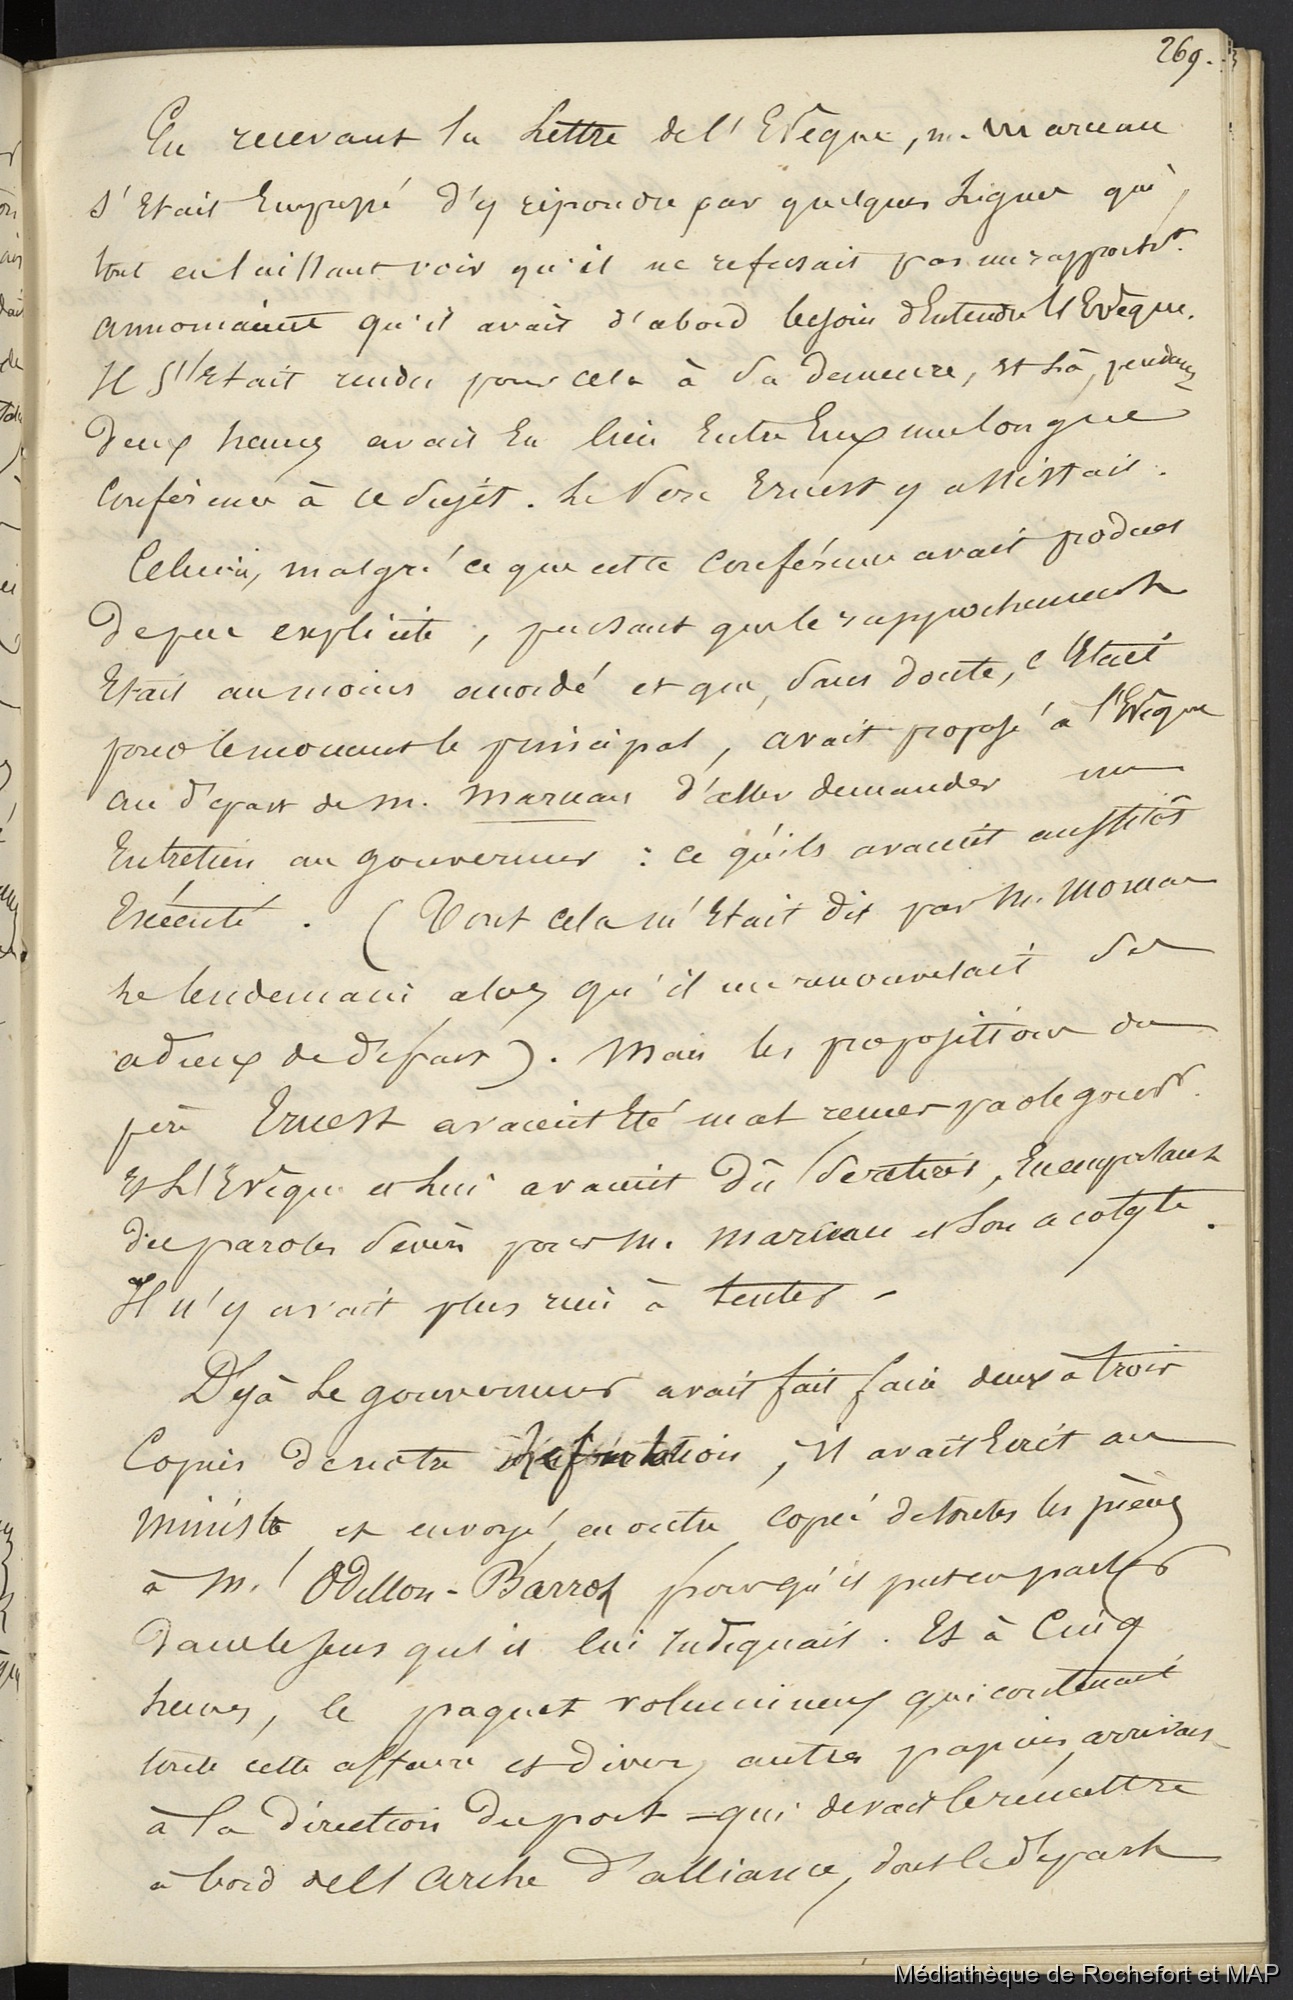 269.
En recevant la Lettre de l'Evêque, m. Marceau
s'Etait Empressé d'y répondre par quelques Lignes qui,
tout en laissant voir qu'il ne refusait pas un rapproch.t
annonçaient qu'il avait d'abord besoin d'Entendre l'Evêque.
Il s'Etait rendu pour cela à Sa demeure, et Là, pendant
deux heures avait Eu lieu Entre Eux une longue
Conférence à ce Sujet. Le Père Ernest y assistait.
Celui-ci, malgré ce que cette Conférence avait produit
de peu explicite, pensant que le rapprochement
Etait au moins accordé et que, Sans doute, c'Etait
pour le moment le principal, avait proposé à l'Evêque
au départ de m. Marceau d'aller demander un
Entretien au gouverneur : ce qu'ils avaient aussitôt
Exécuté. (Tout cela m'Etait dit par M.
Le lendemain alors qu'il me renouvelait Ses
adieux de départ). Mais les propositions du
père Ernest avaient Eté mal reçues par le gouv.r
Et L'Evêque et Lui avaient Dû Se retirer, Emportant
des paroles Sévères pour M. Marceau et Son acolyte.
Il n'y avait plus rien à tenter -
Déjà Le gouverneur avait fait faire deux à trois
Copies de notre Réfutation, il avait Ecrit au
Ministre et envoyé, en outre, copie de toutes les pièces
à M.r Odillon-Barrot pour qu'il put en parler
Dans le sens qu'il lui Indiquait. Et à Cinq
heures, le paquet volumineux qui contenait
toute cette affaire et divers autres papiers, arrivait
à la Direction du port - qui devait le remettre
à bord de l'Arche d'alliance, dont le départ
Médiathèque de Rochefort et MAP